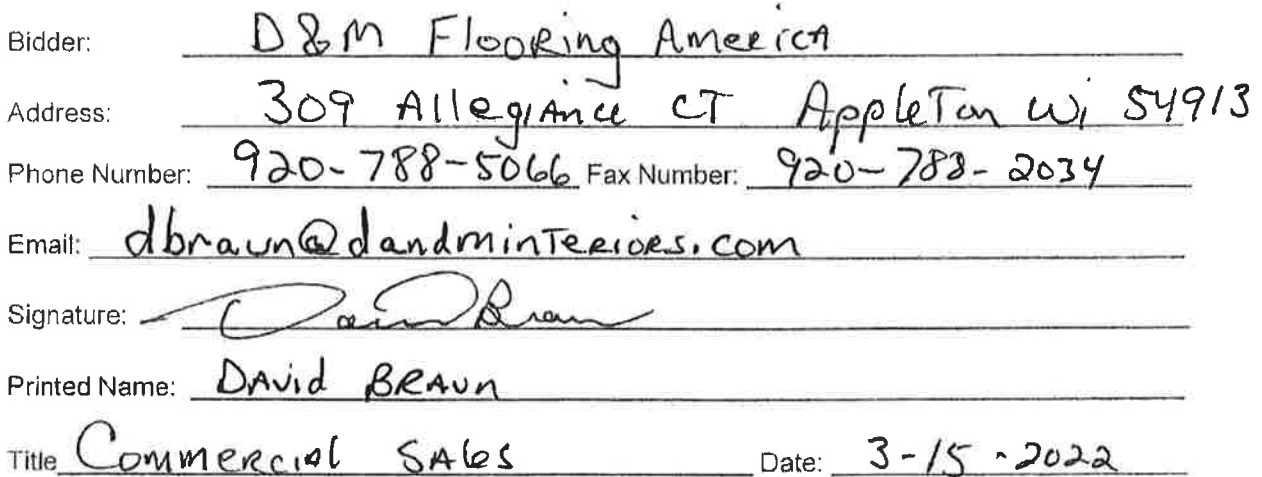 Bidder: D&M Flooring America
Address: 309 Allegiance CT Appleton Wi 54913
Phone Number: 920-788-5066 Fax Number: 920-788-2034
Email: dbraun@dandminteriors.com
Signature: David Braun
Printed Name: David Braun
Title Commercial Sales Date: 3-15-2022